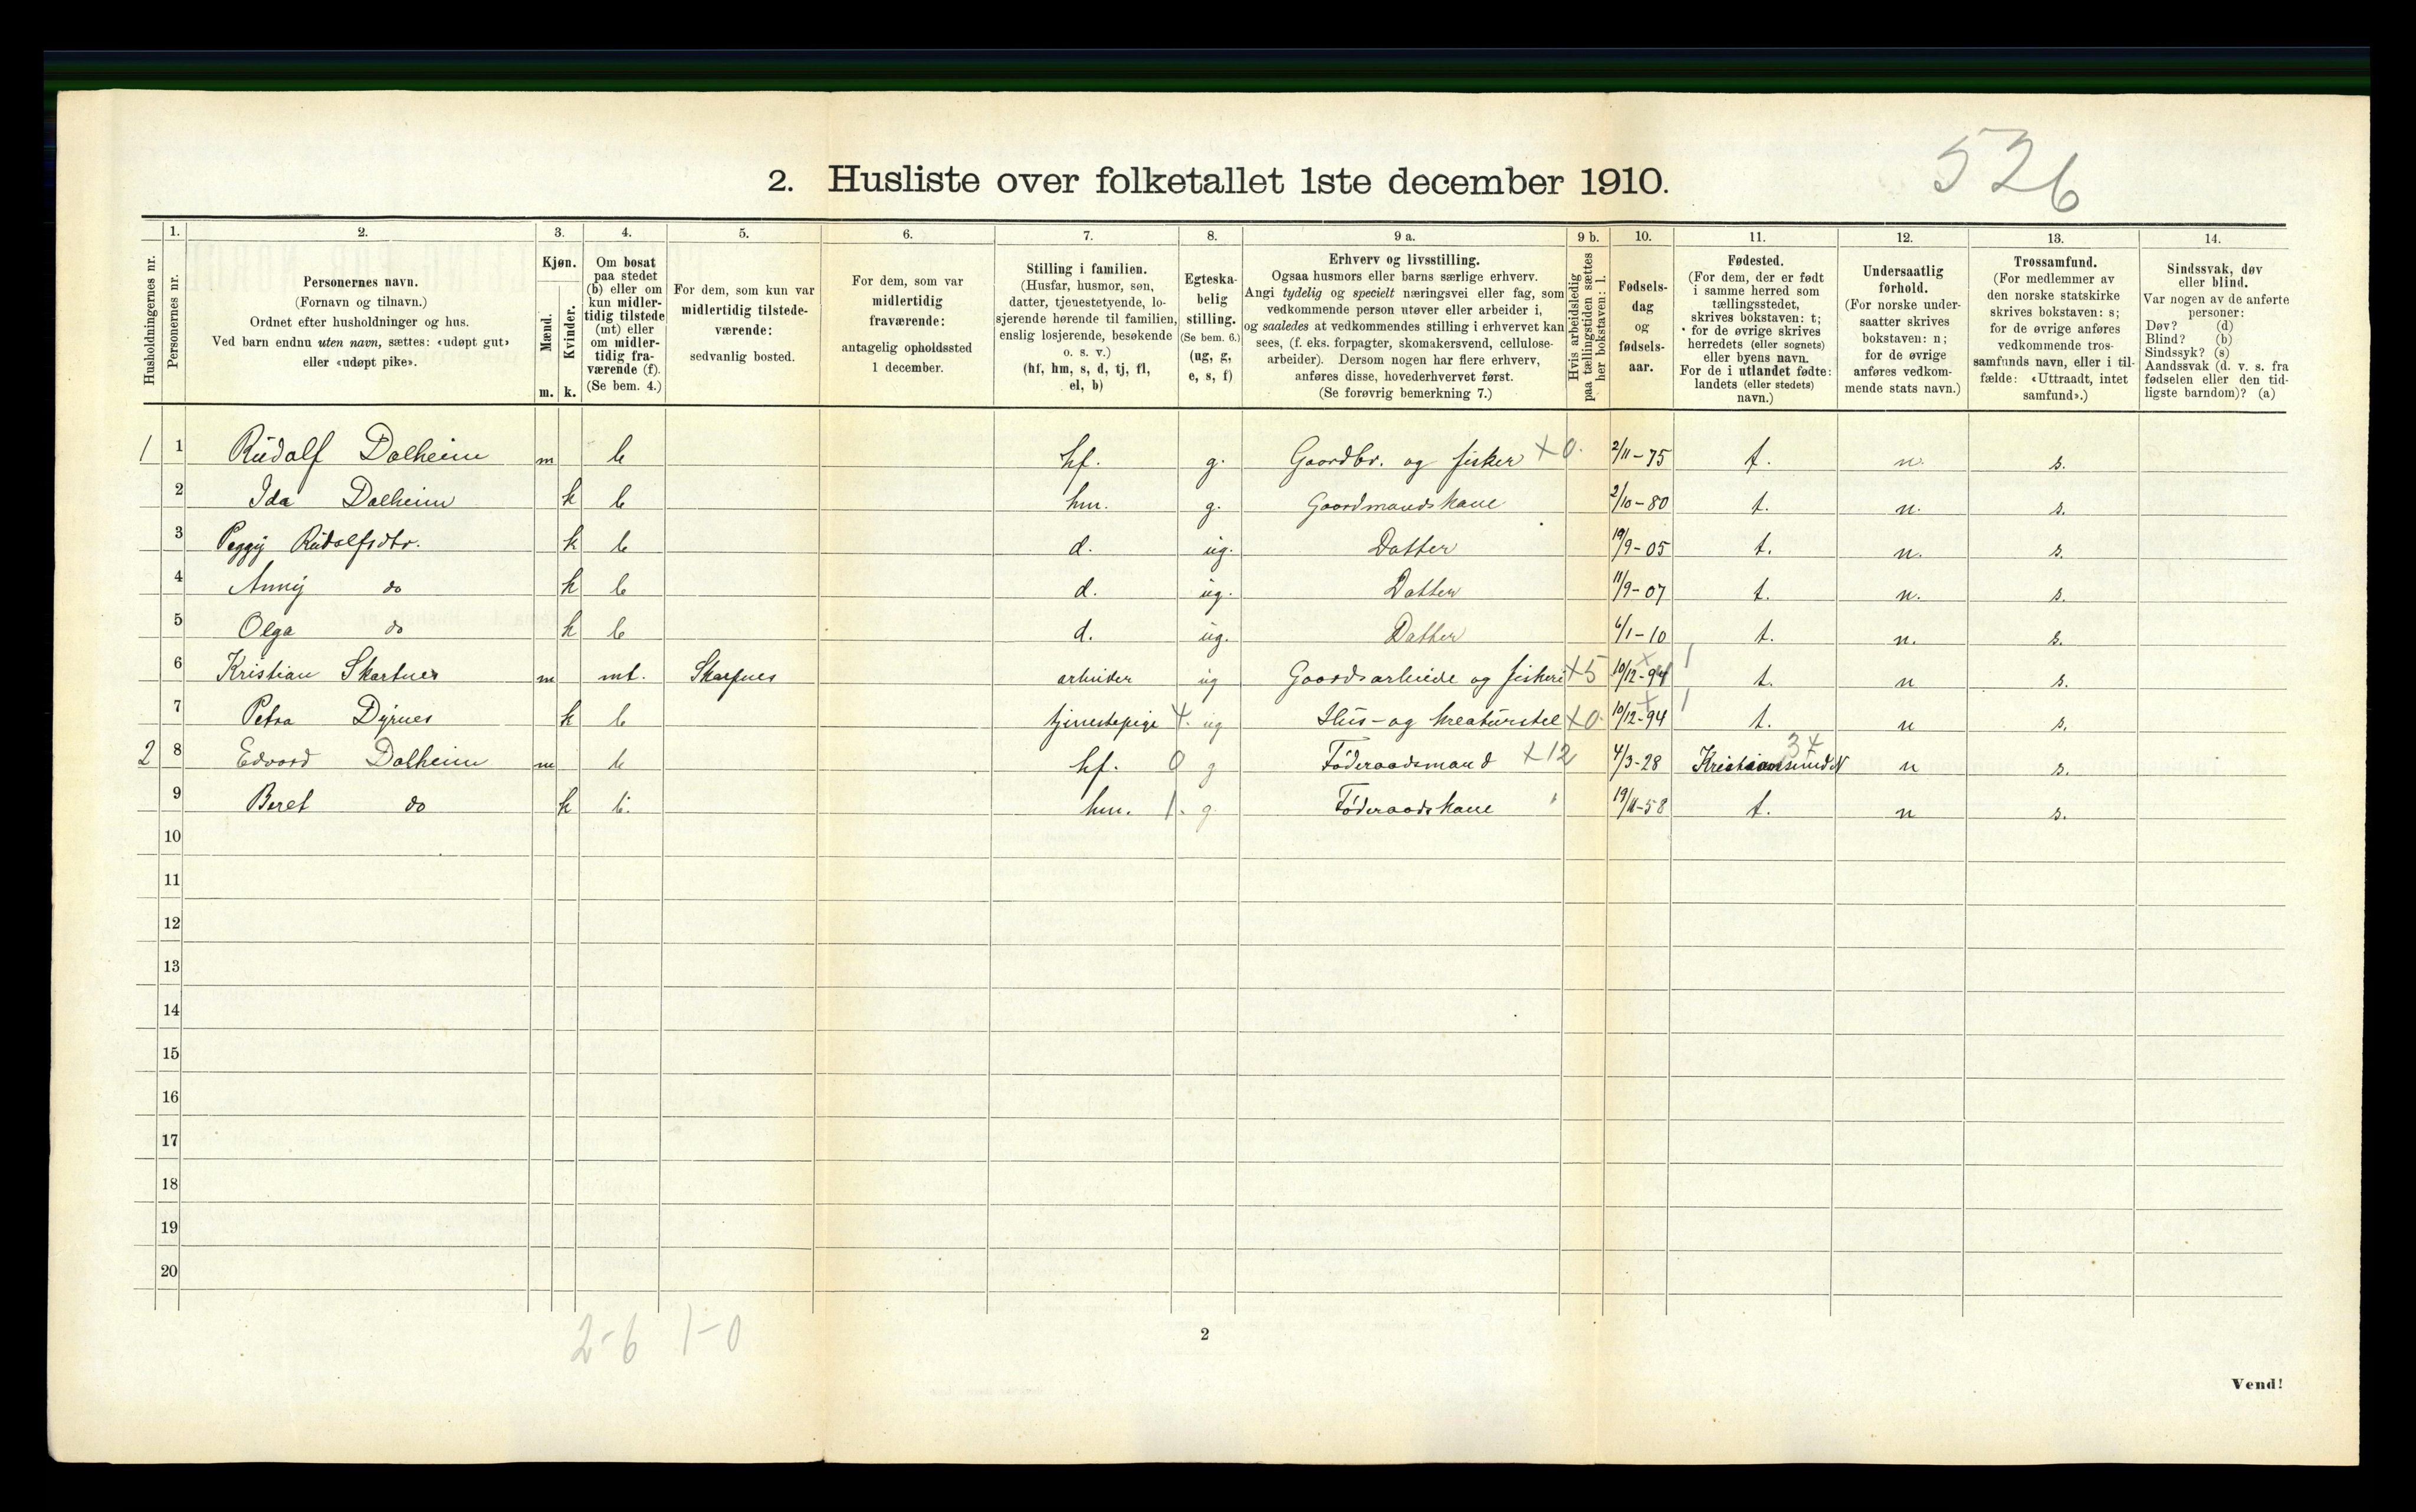 526
2. Husliste over folketallet 1ste december 1910.
Husholdningernes nr.
1. Personernes nr.
2. Personernes navn.
(Fornavn og tilnavn.)
Ordnet efter husholdninger og hus.
Ved barn endnu uten navn, sættes: «udøpt gut»
eller «udøpt pike».
3. Kjøn.
Mænd. m.
Kvinder. k.
4. Om bosat
paa stedet
(b) eller om
kun midler-
tidig tilstede
(mt) eller
om midler-
tidig fra-
værende (f).
(Se bem. 4.)
5. For dem, som kun var
midlertidig tilstede-
værende:
sedvanlig bosted.
6. For dem, som var
midlertidig
fraværende:
antagelig opholdssted
1 december.
7. Stilling i familien.
(Husfar, husmor, søn,
datter, tjenestetyende, lo-
sjerende hørende til familien,
enslig losjerende, besøkende
o. s. v.)
(hf, hm, s, d, tj, fl,
el, b)
8. Egteska-
belig
stilling.
(Se bem. 6.)
(ug, g,
e, s, f)
9 a. Erhverv og livsstilling.
Ogsaa husmors eller barns særlige erhverv.
Angi tydelig og specielt næringsvei eller fag, som
vedkommende person utøver eller arbeider i,
og saaledes at vedkommendes stilling i erhvervet kan
sees, (f. eks. forpagter, skomakersvend, cellulose-
arbeider). Dersom nogen har flere erhverv,
anføres disse, hovederhvervet først.
(Se forøvrig bemerkning 7.)
9 b. Hvis arbeidsledig
paa tællingstiden sættes
her bokstaven: l.
10. Fødsels-
dag
og
fødsels-
aar.
11. Fødested.
(For dem, der er født
i samme herred som
tællingsstedet,
skrives bokstaven: t;
for de øvrige skrives
herredets (eller sognets)
eller byens navn.
For de i utlandet fødte:
landets (eller stedets)
navn.)
12. Undersaatlig
forhold.
(For norske under-
saatter skrives
bokstaven: n;
for de øvrige
anføres vedkom-
mende stats navn.)
13. Trossamfund.
(For medlemmer av
den norske statskirke
skrives bokstaven: s;
for de øvrige anføres
vedkommende tros-
samfunds navn, eller i til-
fælde: «Uttraadt, intet
samfund».)
14. Sindssvak, døv
eller blind.
Var nogen av de anførte
personer:
Døv? (d)
Blind? (b)
Sindssyk? (s)
Aandssvak (d. v. s. fra
fødselen eller den tid-
ligste barndom)? (a)
1 1 Rudolf Dalheim m b hf. g. Gaardbr. og fisker +0. 2/11-75 t. n. s.
2 Ida Dalheim k b hm. g. Gaardmandskone 2/10-80 t. n. s.
3 Peggy Rudolfsdtr. k b d. ug. Datter 19/9-05 t. n. s.
4 Anny do k b d. ug. Datter 11/9-07 t. n. s.
5 Olga do k b d. ug. Datter 6/1-10 t. n. s.
6 Kristian Skarsnes m mt. Skarsnes arbeider ug Gaardsarbeide og fiskeri +5 10/12-94 t. n s.
7 Petra Dyrnes k b tjenestepige 4. ug Hus- og kreaturstel +0. 10/12-94 t. n s.
2 8 Edvard Dalheim m b hf. 0 g Føderaadsmand +12 4/3-28 Kristiansund N 34 n s.
9 Beret do k b. hm. 1. g. Føderaadskone 19/11-58 t. n s.
10
11
12
13
14
15
16
17
18
19
20
2-6 1-0
2
Vend!